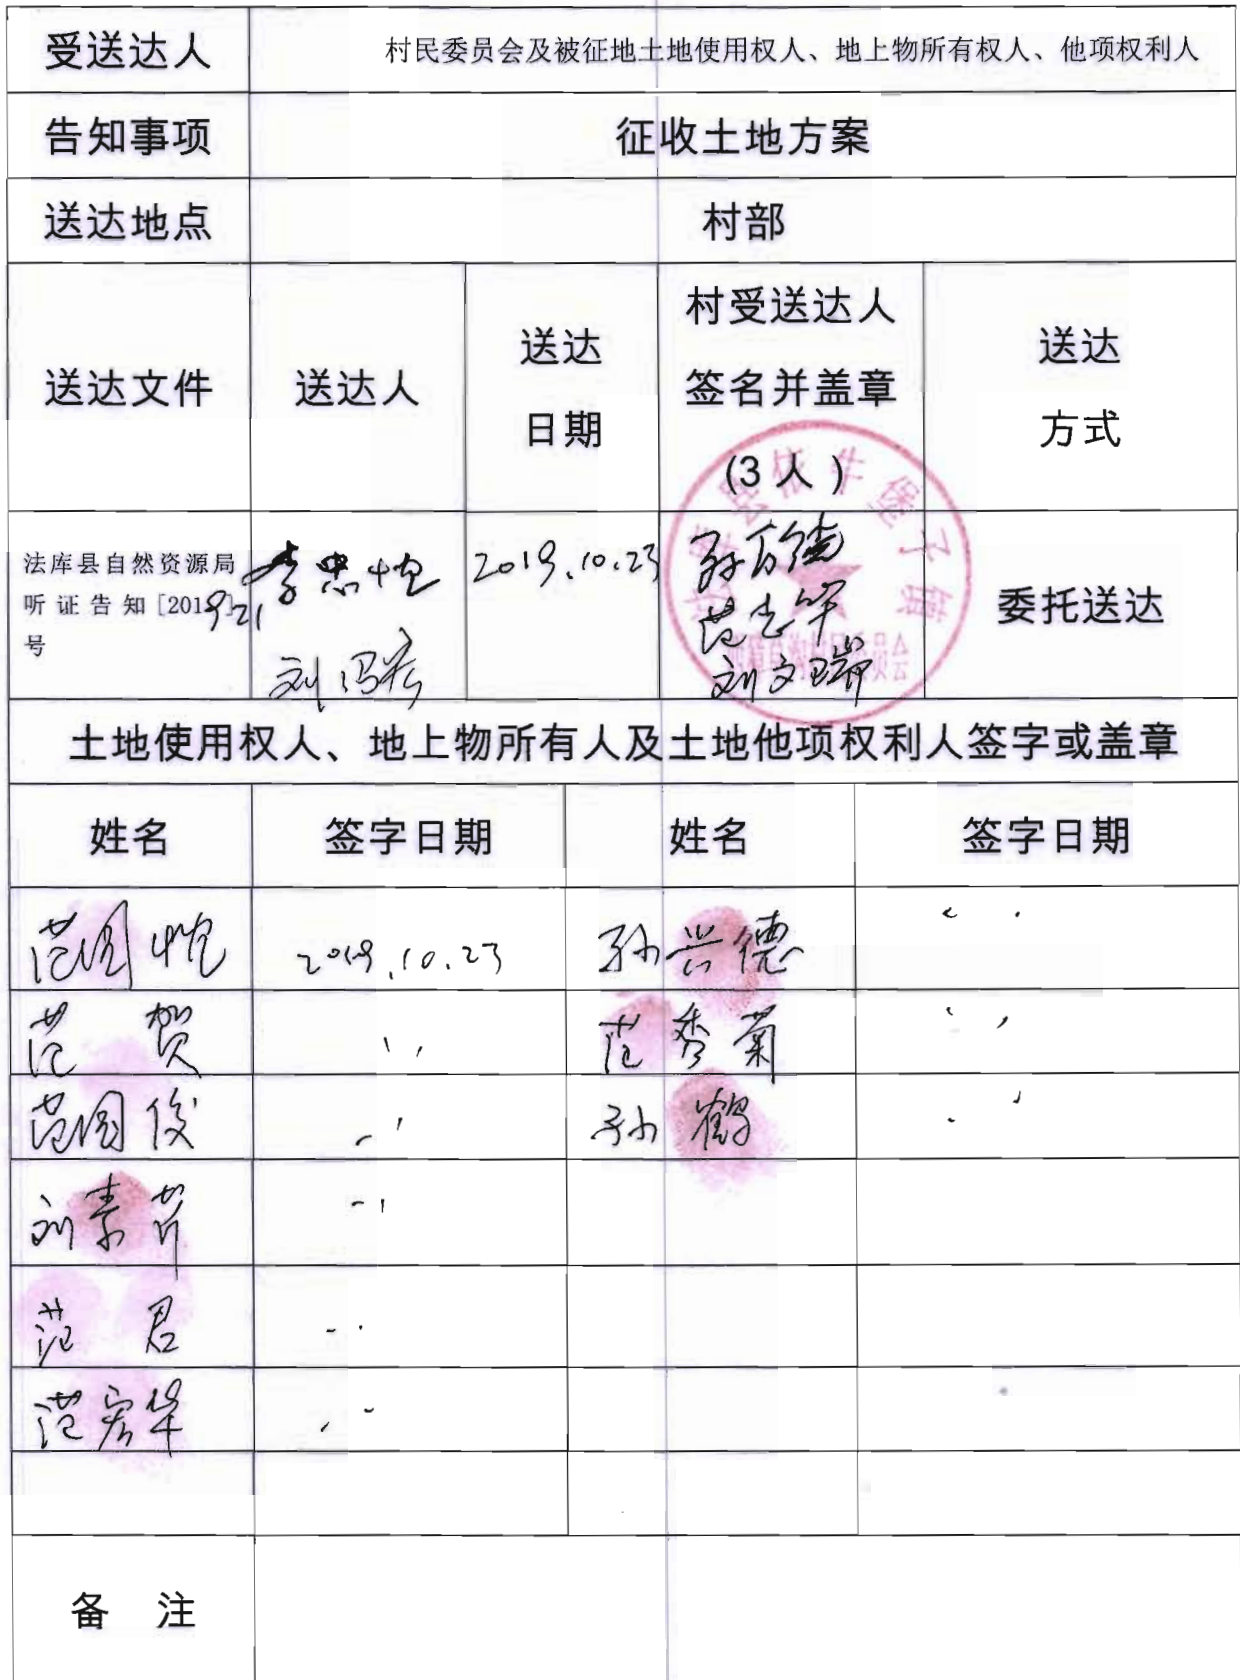 受送达人 村民委员会及被征地土地使用权人、地上物所有权人、他项权利人
告知事项 征收土地方案
送达地点 村部
送达文件 送达人 送达日期 村受送达人签名并盖章(3人) 送达方式
法库县自然资源局
听证告知[2019]21
号
李忠恺
刘
2019.10.23
孙百德
范志军
刘文瑞
委托送达
依牛堡子镇
土地使用权人、地上物所有人及土地他项权利人签字或盖章
姓名 签字日期 姓名 签字日期
范国恺 2019.10.23 孙兴德 〃
范贺 〃 范秀菊 〃
范国俊 〃 孙鹤 〃
刘素芹 〃
范君 〃
范宏华 〃
备 注